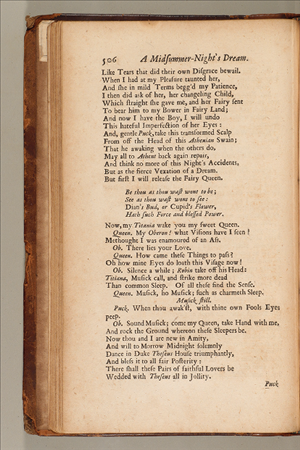 506 A Midsommer-Night's Dream.
Like Tears that did their own Disgrace bewail.
When I had at my Pleasure taunted her,
And she in mild Terms begg'd my Patience,
I then did ask of her, her changeling Child,
Which straight she gave me, and her Fairy sent
To bear him to my Bower in Fairy Land;
And now I have the Boy, I will undo
This hateful Imperfection of her Eyes:
And, gentle Puck, take this transformed Scalp
From off the Head of this Athenian Swain;
That he awaking when the others do,
May all to Athens back again repair,
And think no more of this Night's Accidents,
But as the fierce Vexation of a Dream.
But first I will release the Fairy Queen.
Be thou as thou wast wont to be;
See as thou wast wont to see:
Dian's Bud, or Cupid's Flower,
Hath such Force and blessed Power.
Now, my Titania wake you my sweet Queen.
Queen. My Oberon! what Visions have I seen!
Methought I was enamoured of an Ass.
Ob. There lies your Love.
Queen. How came these Things to pass?
Oh how mine Eyes do loath this Visage now!
Ob. Silence a while; Robin take off his Head:
Titania, Musick call, and strike more dead
Than common Sleep. Of all these find the Sense.
Queen. Musick, ho Musick; such as charmeth Sleep.
Musick still.
Puck. When thou awak'st, with thine own Fools Eyes
peep.
Ob. Sound Musick; come my Queen, take Hand with me,
And rock the Ground whereon these Sleepers be.
Now thou and I are new in Amity,
And will to Morrow Midnight solemnly
Dance in Duke Theseus House triumphantly,
And bless it to all fair Posterity:
There shall these Pairs of faithful Lovers be
Wedded with Theseus all in Jollity.
Puck